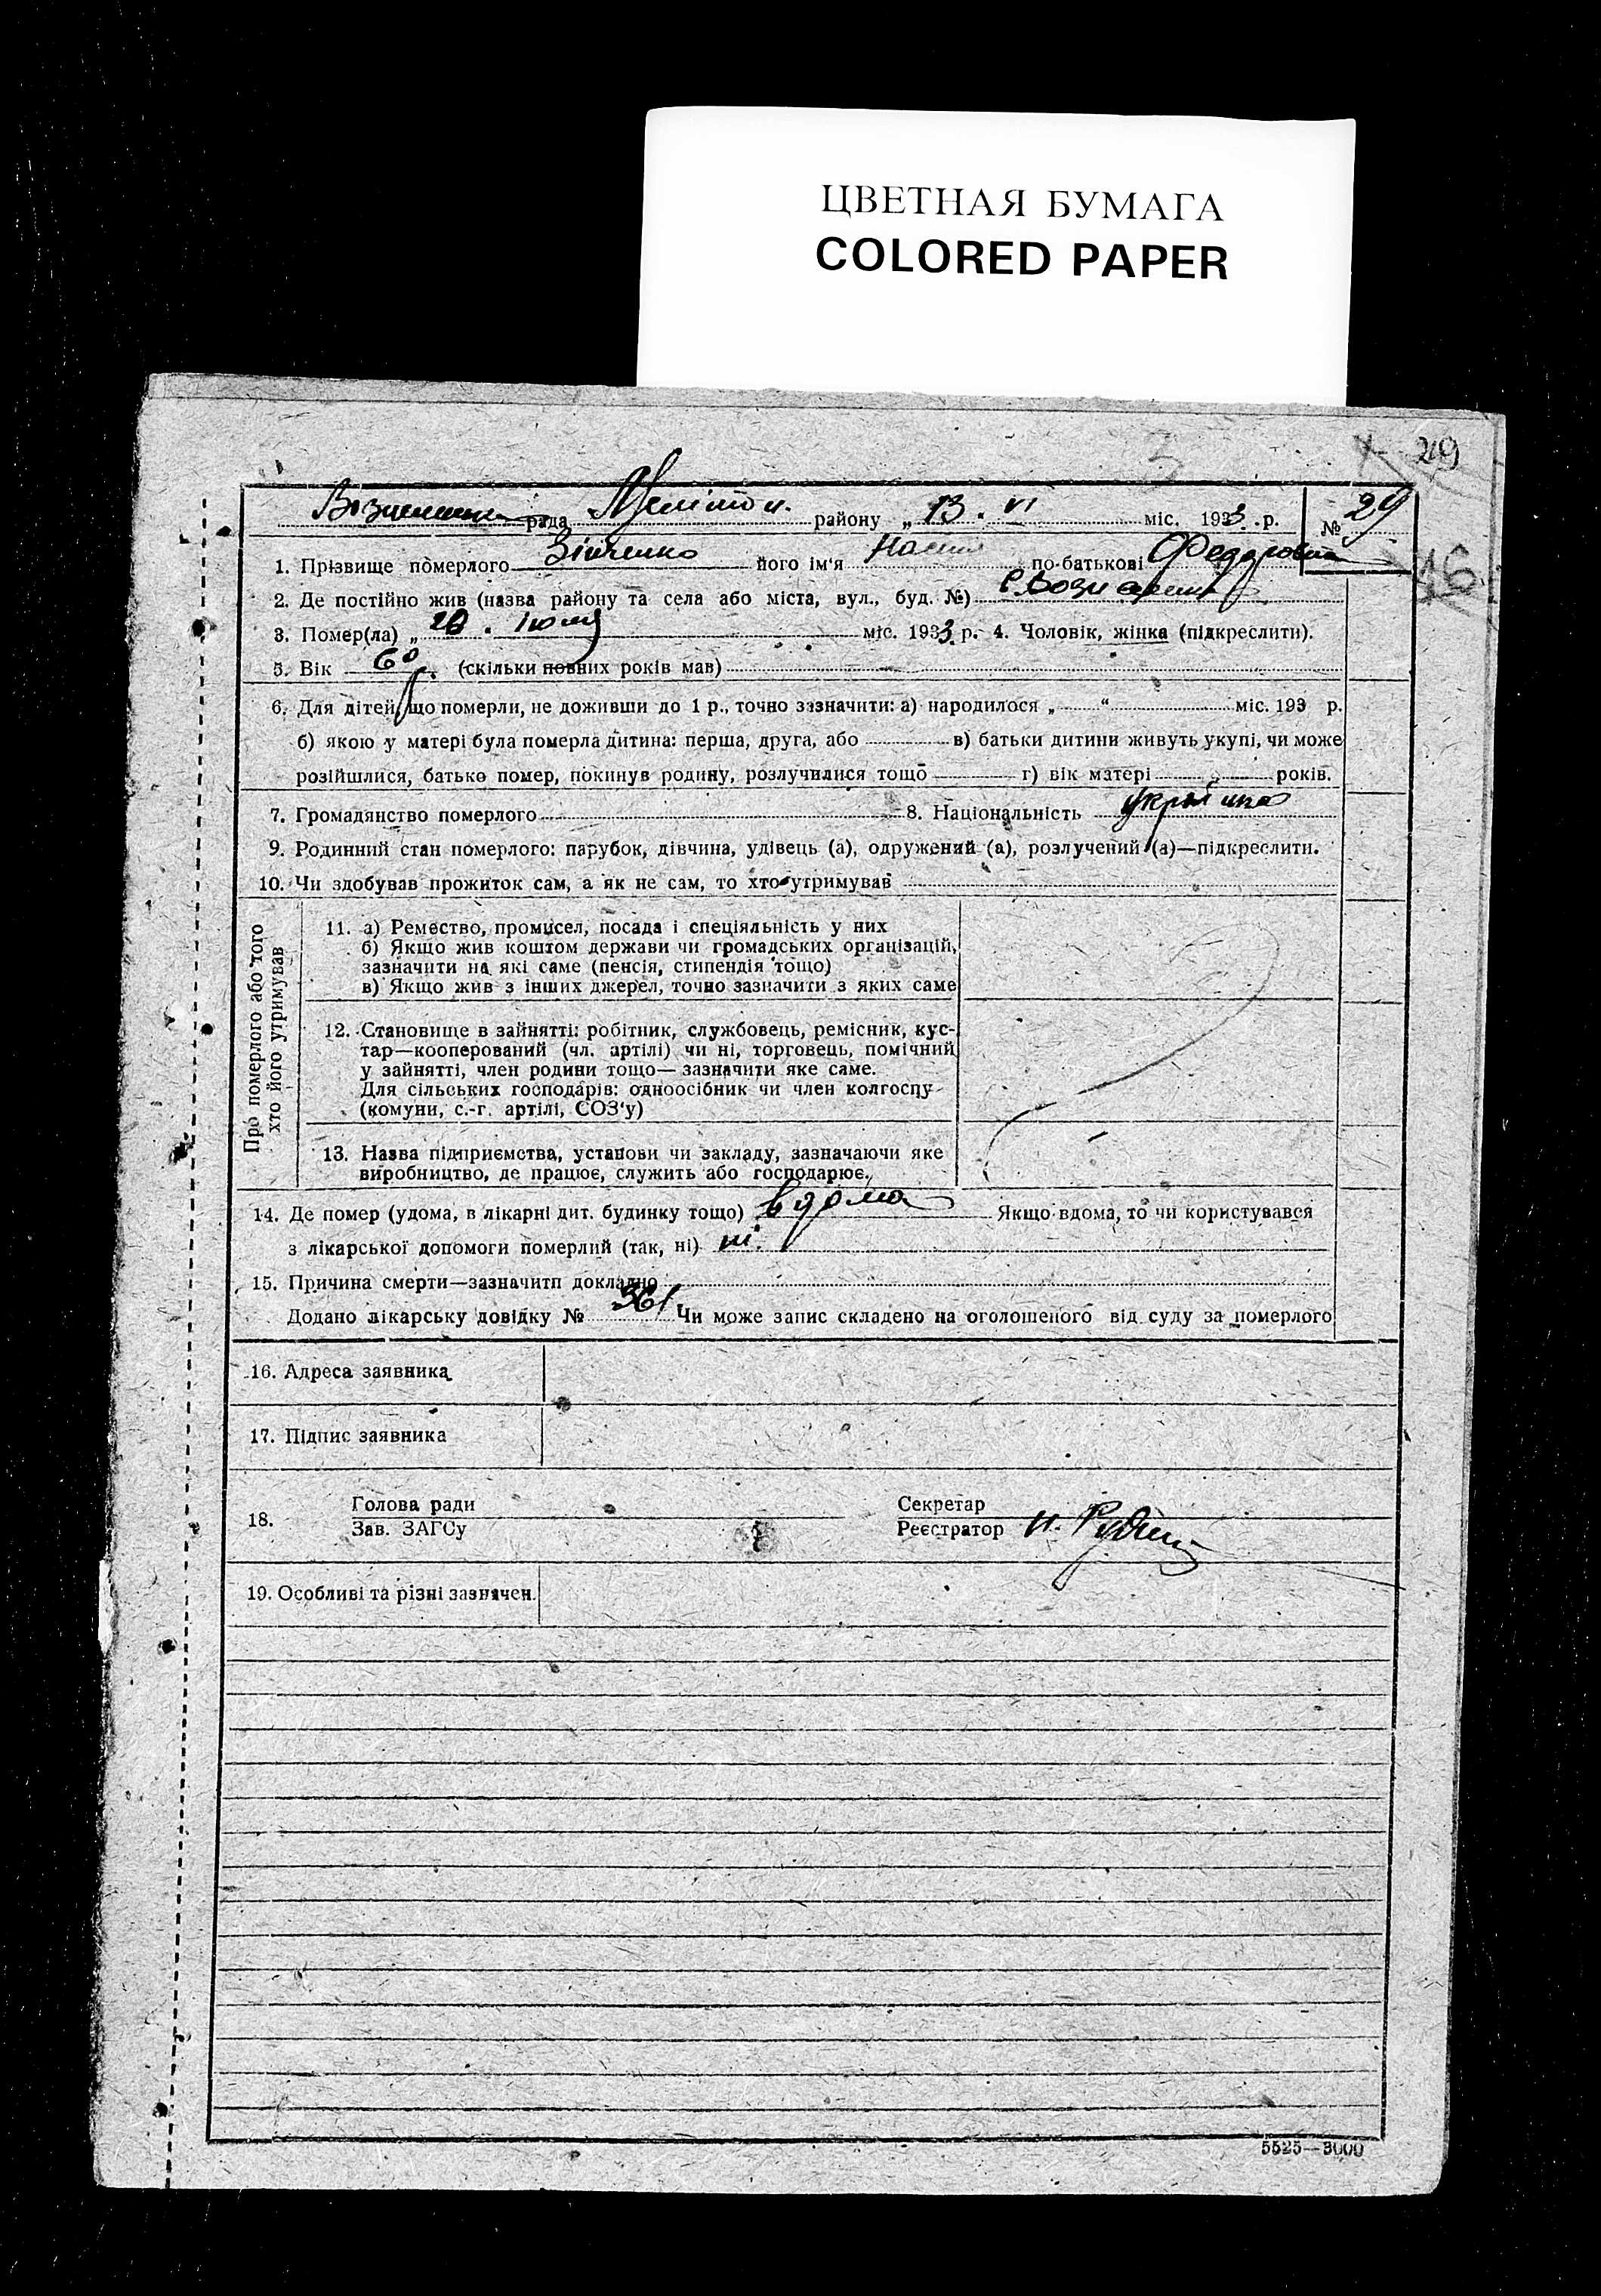 ЦВЕТНАЯ БУМАГА
COLORED PAPER
29
рада Мелітоп. району „ 13. VI міс. 1933 .р. № 29
1. Прізвище померлого Зінченко його ім'я по-батькові Федоровна
16
2. Де постійно жив (назва району та села або міста, вул., буд. №)
3. Помер(ла) „ міс. 1933 р. 4. Чоловік, жінка (підкреслити).
5. Вік 60 р. (скільки повних років мав)
6. Для дітей, що померли, не доживши до 1 р., точно зазначити: а) народилося „ “ міс. 193 р.
б) якою у матері була померла дитина: перша, друга, або в) батьки дитини живуть укупі, чи може
розійшлися, батько помер, покинув родину, розлучилися тощо г) вік матері років.
7. Громадянство померлого 8. Національність
9. Родинний стан померлого: парубок, дівчина, удівець (а), одружений (а), розлучений (а)—підкреслити.
10. Чи здобував прожиток сам, а як не сам, то хто утримував
Про померлого або того
хто його утримував
11. а) Ремество, промисел, посада і спеціяльність у них
б) Якщо жив коштом держави чи громадських організацій,
зазначити на які саме (пенсія, стипендія тощо)
в) Якщо жив з інших джерел, точно зазначити з яких саме
12. Становище в зайнятті: робітник, службовець, ремісник, кус-
тар—кооперований (чл. артілі) чи ні, торговець, помічний
у зайнятті, член родини тощо— зазначити яке саме.
Для сільських господарів: одноосібник чи член колгоспу
(комуни, с.-г. артілі, СОЗ'у)
13. Назва підприємства, установи чи закладу, зазначаючи яке
виробництво, де працює, служить або господарює.
14. Де помер (удома, в лікарні дит. будинку тощо) вдома Якщо вдома, то чи користувався
з лікарської допомоги померлий (так, ні) ні.
15. Причина смерти—зазначити докладно
Додано лікарську довідку № 361 Чи може запис складено на оголошеного від суду за померлого
16. Адреса заявника
17. Підпис заявника
18. Голова ради Секретар
Зав. ЗАГСу Реєстратор
19. Особливі та різні зазначен.
5525—3000